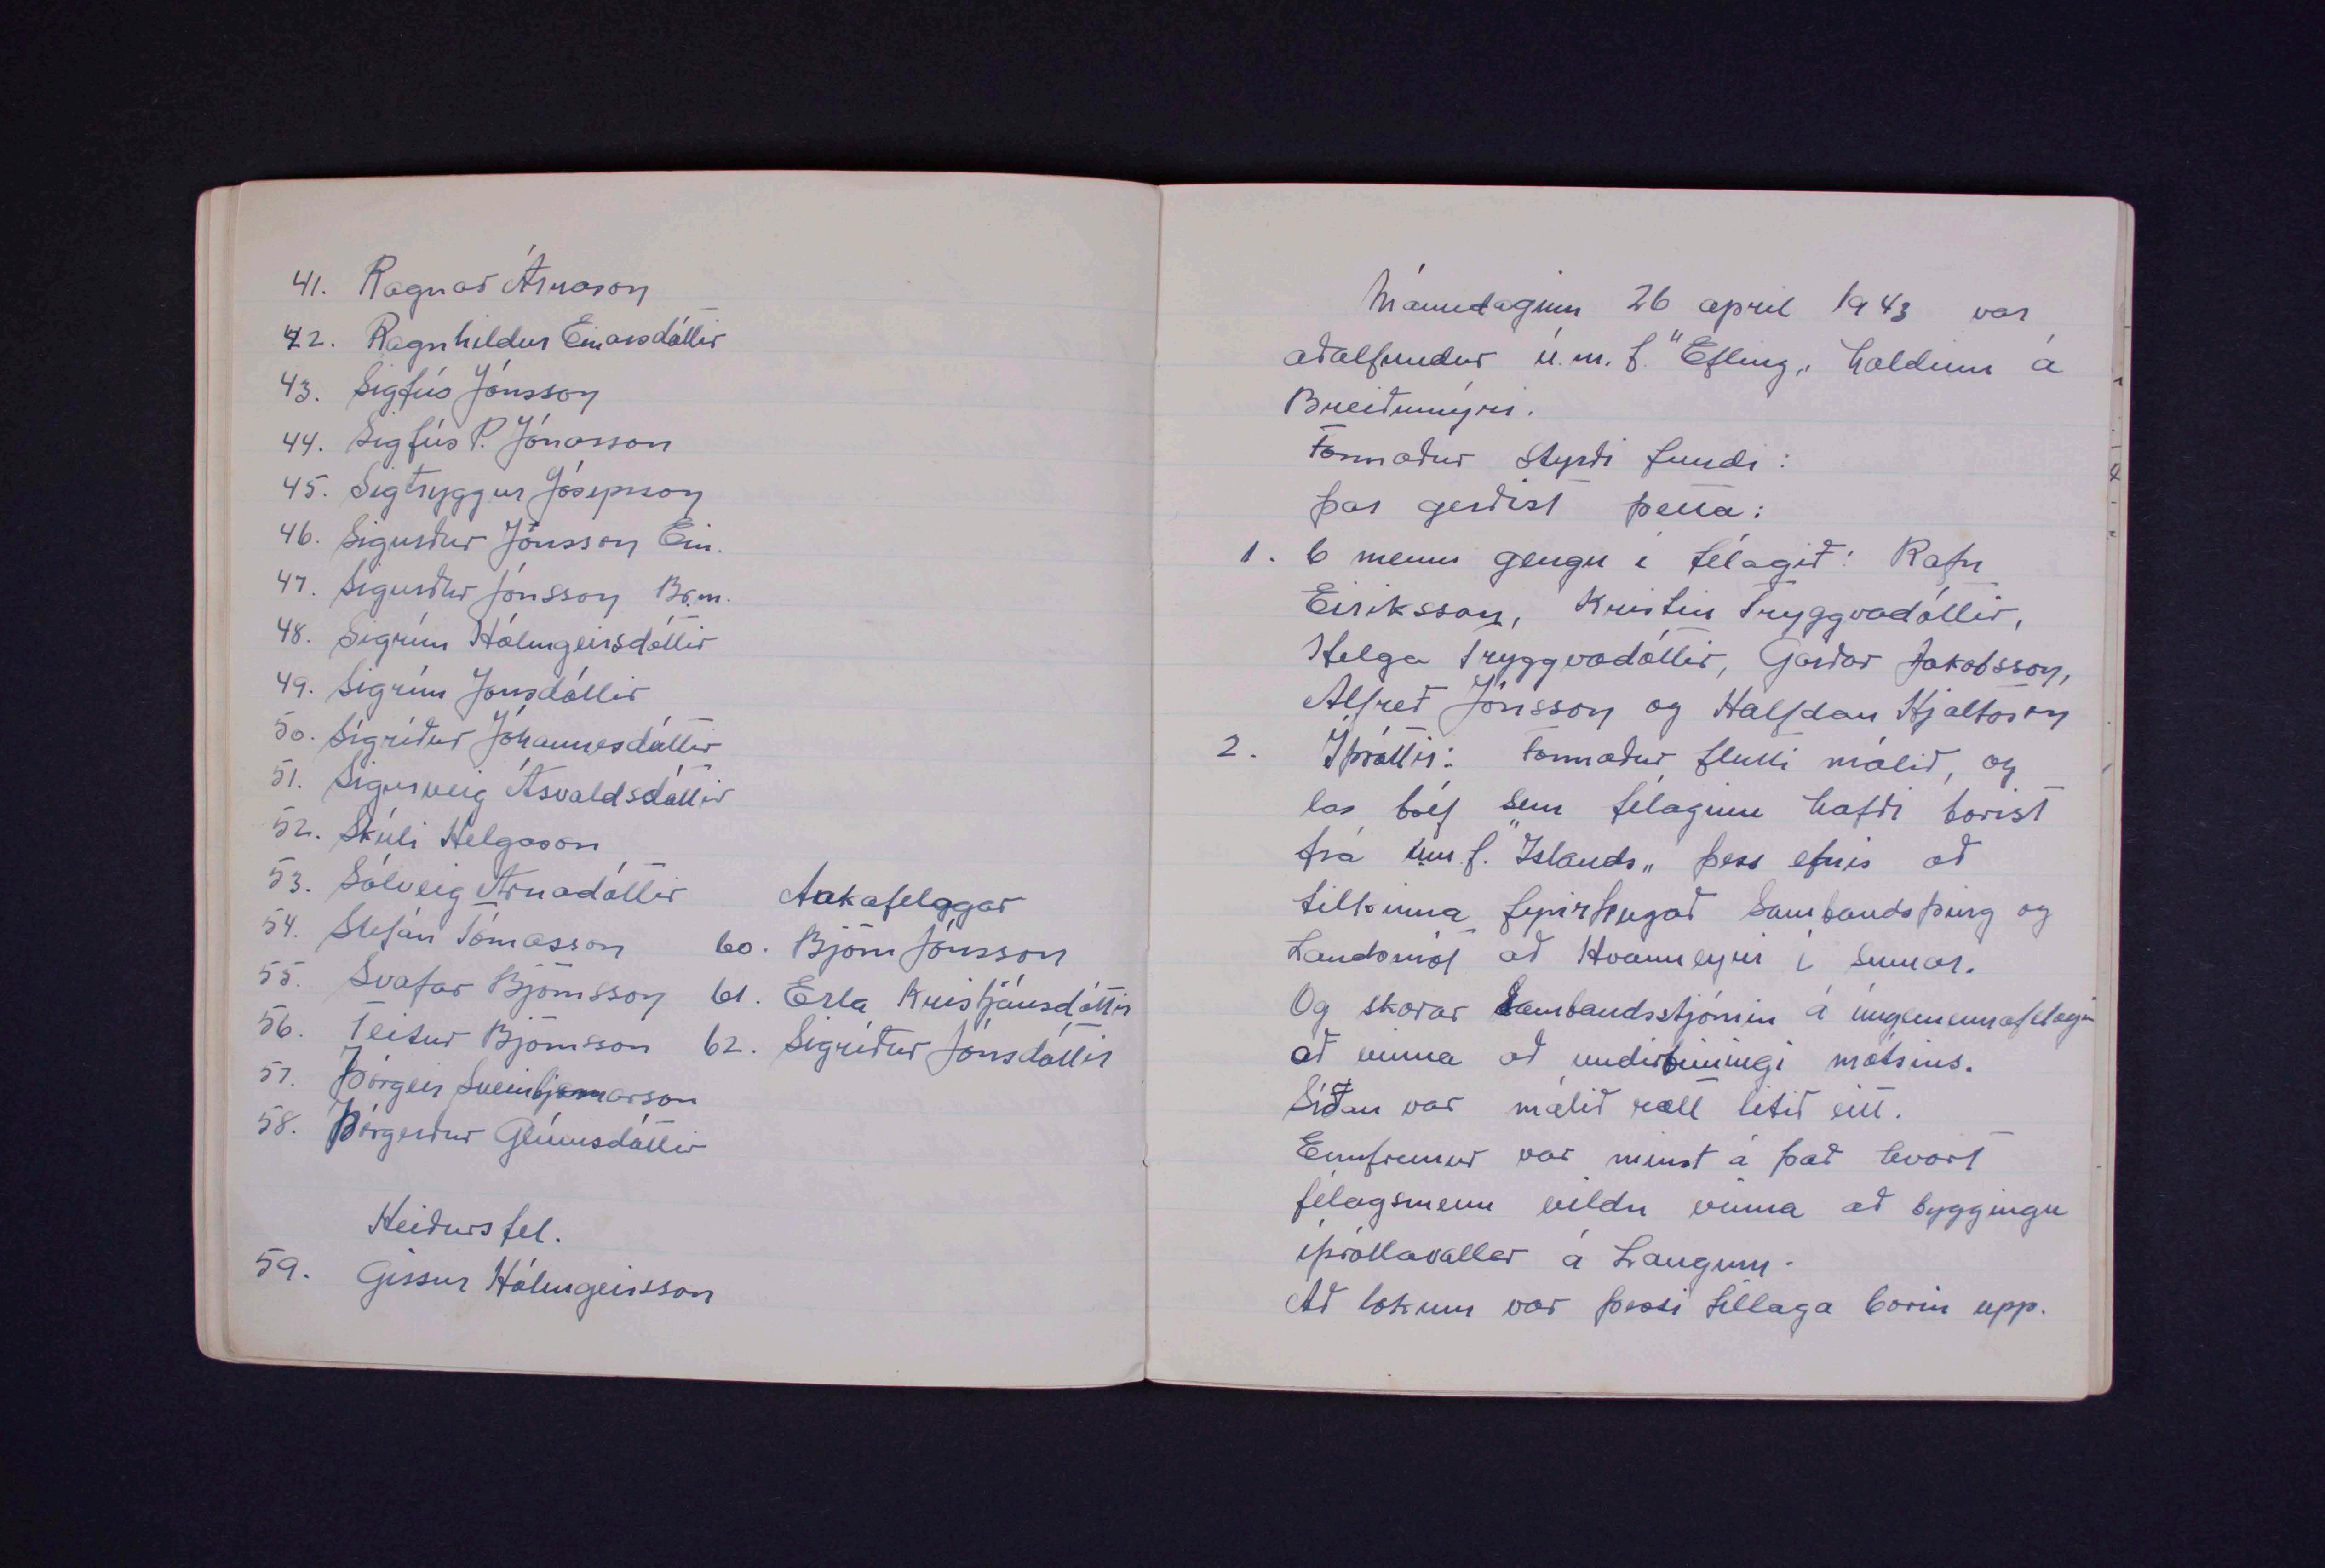 41. Ragnar Árnason
42. Ragnhildur Einarsdóttir
43. Sigfús Jónsson
44. Sigfús P. Jónasson
45. Sigtryggur Jósepsson
46. Sigurður Jónsson Ein.
47. Sigurður Jónsson Br.m.
48. Sigrún Hólmgeirsdóttir
49. Sigrún Jónsdóttir
50. Sigríður Jóhannesdóttir
51. Sigurveig Ásvaldsdóttir
52. Skúli Helgason
53. Sólveig Árnadóttir
54. Stefán Tómasson
55. Svafar Björnsson
56. Teitur Björnsson
57. Þórgeir Sveinbjarnarson
58. Þórgerður Glúmsdóttir
Heiðursfel.
59. Gissur Hólmgeirsson
Aukafelagar
60. Björn Jónsson
61. Erla Kristjánsdóttir
62. Sigríður Jónsdóttir
Mánudaginn 26 april 1943 var
aðalfundur ú.m.f. "Efling„ haldinn á
Breiðumýri.
Formaður styrði fundi:
Þar gerðist þetta:
1. 6 menn gengu i félagið: Rafn
Eiriksson, Kristin Tryggvadóttir,
Helga Tryggvadóttir, Garðar Jakobsson,
Alfreð Jónsson og Halfdan Hjaltason
2. Íþróttir: Formaður flutti málið, og
las bréf sem félaginu hafði borist
frá úm.f. "Islands„ þess efnis að
tilkinna fyrirhugað Sambandsþing og
Landsmót að Hvanneyri i sumar.
Og skorar Sambandsstjórnin á úngmennafelögin
að vinna að undirbúningi mótsins.
Síðan var málið rætt litið eitt.
Ennfremur var minst á það hvort
félagsmenn vildu vinna að byggingu
íþróttavallar á Laugum.
Að lokum var þessi tillaga borin upp.